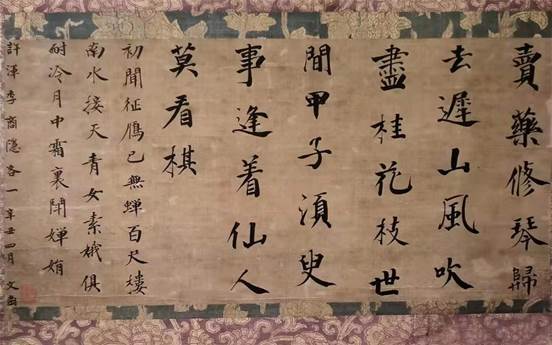 賣藥修琴歸
去遲山風吹
盡桂花枝世
間甲子須臾
事逢着仙人
莫看棋
初聞征鴈已無蟬百尺樓
南水接天青女素娥俱
耐冷月中霜裏鬪嬋娟
許渾李商隱各一辛丑四月